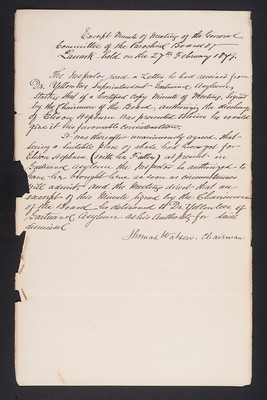 Excerpt Minute of Meeting of the General
Committee of the Parochial Board of
Lanark held on the 27th February 1879.
The Inspector read a Letter he had received from
Dr. Yellowlees Superintendent Gartnavel Asylum,
Stating that if a Certified Copy Minute of Meeting, signed
by the Chairman of the Board, authorizing the discharge
of Elison Hepburn was presented there he would
give it his favourable consideration.
It was thereafter unanimously agreed that
seeing a suitable place of abode had been got for
Elison Hepburn (with her Father) at present in
Gartnavel Asylum the Inspector be authorized to
have her brought here as soon as circumstances
will admit and the Meeting direct that an
excerpt of this Minute signed by the Chairman
of the Board be delivered to Dr Yellowlees of
Gartnavel Asylum as his Authority for said
dismissal
Thomas Watson, Chairman